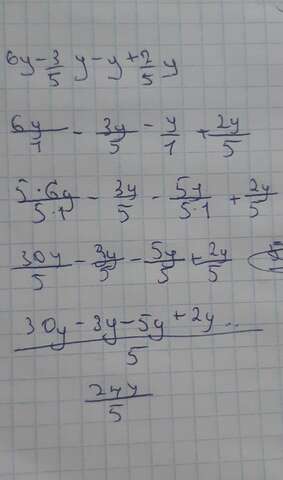 6y - 3/5 y - y + 2/5 y
6y/1 - 3y/5 - y/1 + 2y/5
5·6y/5·1 - 3y/5 - 5y/5·1 + 2y/5
30y/5 - 3y/5 - 5y/5 + 2y/5
30y - 3y - 5y + 2y ../5
24y/5